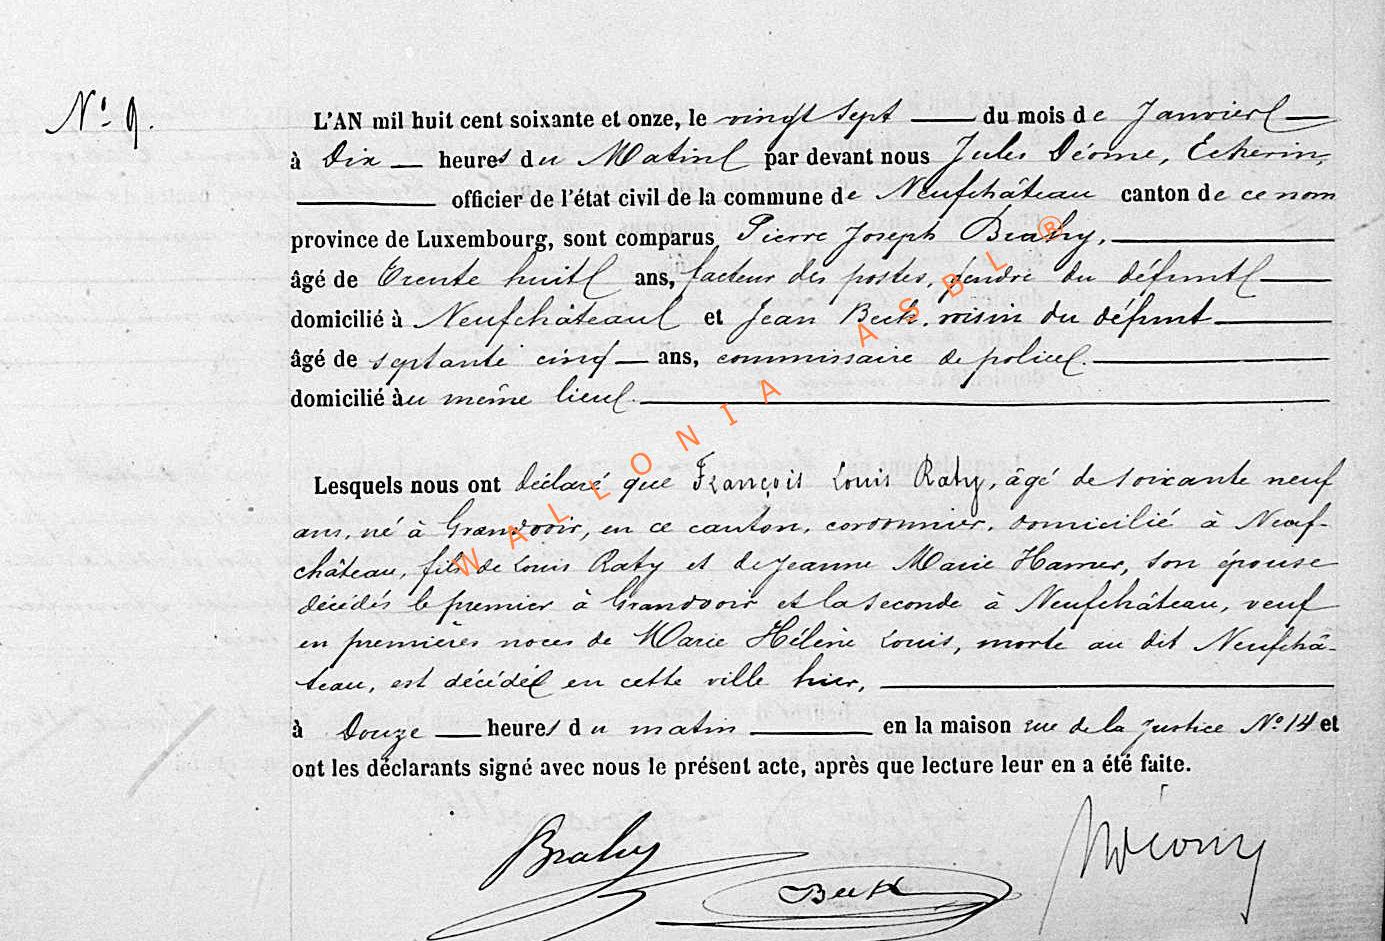 N° 9.
L'AN mil huit cent soixante et onze, le vingt sept du mois de Janvier
à Dix heures du Matin par devant nous Jules Déome, Echevin,
officier de l'état civil de la commune de Neufchâteau canton de ce nom
province de Luxembourg, sont comparus Pierre Joseph Brahy,
âgé de Trente huit ans, facteur des postes, gendre du défunt
domicilié à Neufchâteau et Jean Beck, voisin du défunt
âgé de septante cinq ans, commissaire de police.
domicilié au même lieu.
Lesquels nous ont déclaré que François Louis Raty, âgé de soixante neuf
ans, né à Grandvoir, en ce canton, cordonnier, domicilié à Neuf-
château, fils de Louis Raty et de Jeanne Marie Hamer, son épouse
décédés le premier à Grandvoir et la seconde à Neufchâteau, veuf
en premières noces de Marie Hélène Louis, morte au dit Neufchâ-
teau, est décédé en cette ville hier,
à Douze heures du matin en la maison rue de la Justice N° 14 et
ont les déclarants signé avec nous le présent acte, après que lecture leur en a été faite.
Brahy
Beck
WALLONIA ASBL ®